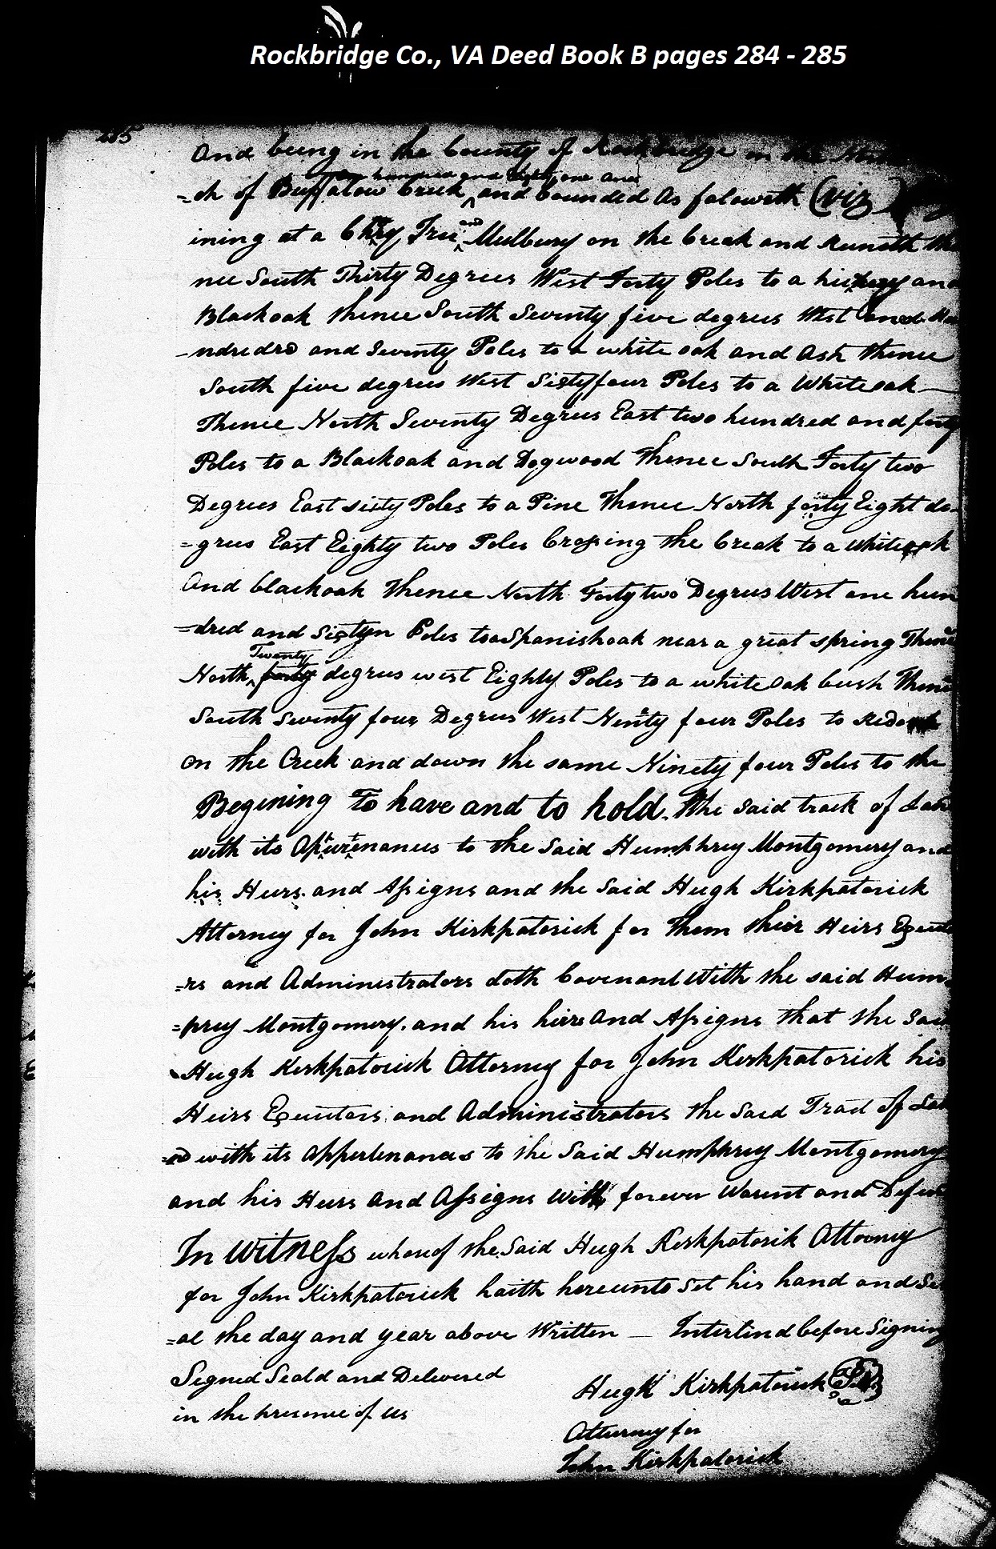 Rockbridge Co., VA Deed Book B pages 284 - 285
285
And being in the County of Rockbridge on the
hundred and Eighty one and
=ch of Buffalow Creek and bounded As foloweth (viz)
ining at a Chry Tree and Mulbury on the Creak and Runeth the
nce South Thirty Degrees West Forty Poles to a hickery and
Blackoak thence South Seventy five degrees West oned Hu
=ndredrd and Seventy Poles to a white oak and Ash thence
South five degrees West Sixtyfour Poles to a Whiteoak
Thence North Seventy Degrees East two hundred and forty
Poles to a Blackoak and Dogwood Thence South Forty two
Degrees East sixty Poles to a Pine Thence North forty Eight de
=grees East Eighty two Poles Crossing the Creak to a whiteoak
And blackoak thence North Forty two Degrees West one hun
=dred and Sixtyn Poles to a Spanishoak near a great spring Thence
Twenty
North forty degrees west Eighty Poles to a white Oak bush thence
South Seventy four Degrees West Ninty four Poles to Redoak
on the Creek and down the same Ninety four Poles to the
Begining To have and to hold The said track of Lan
with its to the Said Humphrey Montgomery and
his Heirs and Assigns and the Said Hugh Kirkpatorick
Attorney for John Kirkpatorick for them their Heirs Executo
=rs and Administrators doth Covenant With the said Hum
=prey Montgomery and his heirs And Assigns that the Said
Hugh Kirkpatorick Attorney for John Kirkpatorick his
Heirs Executors and Administrators the Said Tract of Lan
=d with its Appertenances to the Said Humphrey Montgomery
and his Heirs And Assigns Will forever Warent and Defend
In witness whereof the Said Hugh Kirkpatorik Attorney
for John Kirkpatorick haith hereunto Set his hand and Se
=al the day and year above Written — Interlind before Signing
Signed Seald and Delivered
in the presence of us
Hugh Kirkpatorick Seal
Attorney for
John Kirkpatorick